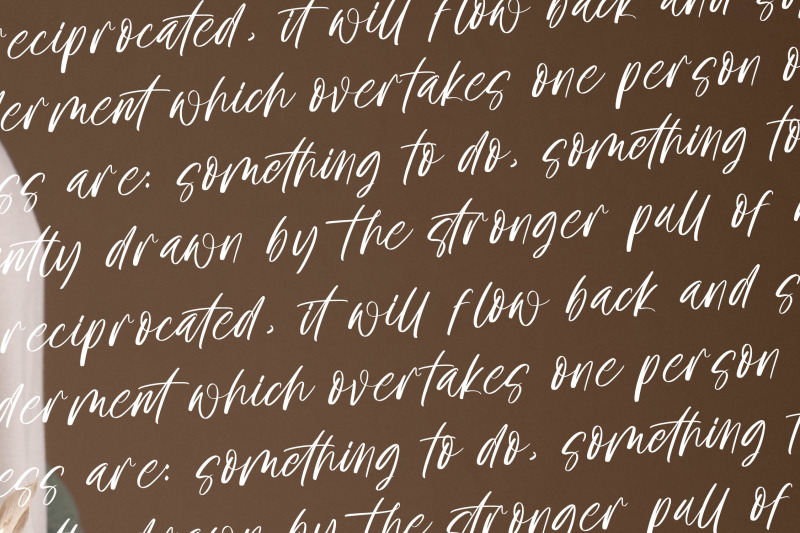 reciprocated, it will flow back and so
derment which overtakes one person o
ss are: something to do, something to
ntly drawn by the stronger pull of
reciprocated, it will flow back and s
derment which overtakes one person
ess are: something to do, something t
drawn by the stronger pull of